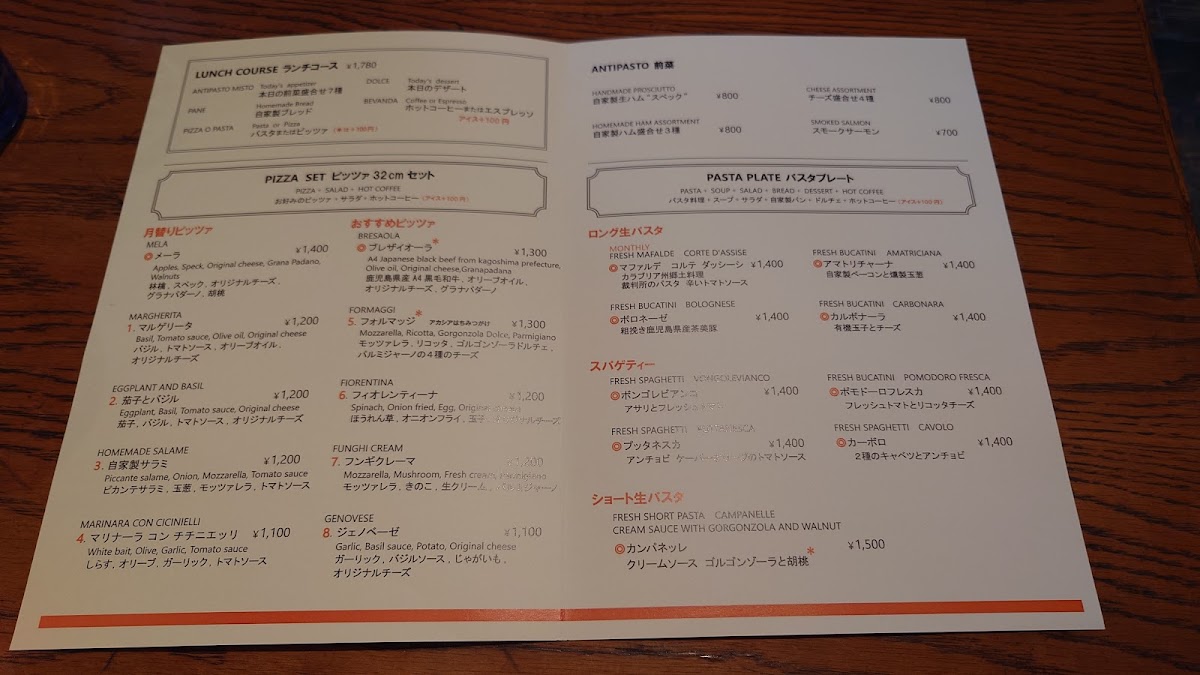 LUNCH COURSE ランチコース ¥1,780
ANTIPASTO MISTO Today's appetizer
本日の前菜盛合せ7種
PANE Homemade Bread
自家製ブレッド
PIZZA O PASTA Pasta or Pizza
パスタまたはピッツァ
DOLCE Today's dessert
本日のデザート
BEVANDA Coffee or Espresso
ホットコーヒーまたはエスプレッソ
アイス+100円
PIZZA SET ピッツァ 32cm セット
PIZZA・ SALAD・ HOT COFFEE
お好みのピッツァ・サラダ・ホットコーヒー(アイス+100円)
月替りピッツァ
MELA
◎メーラ ¥1,400
Apples, Speck, Original cheese, Grana Padano,
Walnuts
林檎, スペック, オリジナルチーズ,
グラナパダーノ, 胡桃
MARGHERITA
1. マルゲリータ ¥1,200
Basil, Tomato sauce, Olive oil, Original cheese
バジル, トマトソース, オリーブオイル,
オリジナルチーズ
EGGPLANT AND BASIL
2. 茄子とバジル ¥1,200
Eggplant, Basil, Tomato sauce, Original cheese
茄子, バジル, トマトソース, オリジナルチーズ
HOMEMADE SALAME
3. 自家製サラミ ¥1,200
Piccante salame, Onion, Mozzarella, Tomato sauce
ピカンテサラミ, 玉葱, モッツァレラ, トマトソース
MARINARA CON CICINIELLI
4. マリナーラ コン チチニエッリ ¥1,100
White bait, Olive, Garlic, Tomato sauce
しらす, オリーブ, ガーリック, トマトソース
おすすめピッツァ
BRESAOLA
◎ブレザイオーラ* ¥1,300
A4 Japanese black beef from kagoshima prefecture,
Olive oil, Original cheese,Granapadana
鹿児島県産 A4 黒毛和牛, オリーブオイル,
オリジナルチーズ, グラナパダーノ
FORMAGGI
5. フォルマッジ* アカシアはちみつがけ ¥1,300
Mozzarella, Ricotta, Gorgonzola Dolce, Parmigiano
モッツァレラ, リコッタ, ゴルゴンゾーラドルチェ,
パルミジャーノの4種のチーズ
FIORENTINA
6. フィオレンティーナ ¥1,200
Spinach, Onion fried, Egg, Original cheese
ほうれん草, オニオンフライ, 玉子, オリジナルチーズ
FUNGHI CREAM
7. フンギクレーマ ¥1,200
Mozzarella, Mushroom, Fresh cream,
モッツァレラ, きのこ, 生クリーム,
GENOVESE
8. ジェノベーゼ ¥1,100
Garlic, Basil sauce, Potato, Original cheese
ガーリック, バジルソース, じゃがいも,
オリジナルチーズ
ANTIPASTO 前菜
HANDMADE PROSCIUTTO
自家製生ハム"スペック" ¥800
HOMEMADE HAM ASSORTMENT
自家製ハム盛合せ3種 ¥800
CHEESE ASSORTMENT
チーズ盛合せ4種 ¥800
SMOKED SALMON
スモークサーモン ¥700
PASTA PLATE パスタプレート
PASTA・ SOUP・ SALAD・ BREAD・ DESSERT・ HOT COFFEE
パスタ料理・スープ・サラダ・自家製パン・ドルチェ・ホットコーヒー(アイス+100円)
ロング生パスタ
MONTHLY
FRESH MAFALDE CORTE D'ASSISE
◎マファルデ コルテ ダッシーシ ¥1,400
カラブリア州郷土料理
裁判所のパスタ 辛いトマトソース
FRESH BUCATINI AMATRICIANA
◎アマトリチャーナ ¥1,400
自家製ベーコンと燻製玉葱
FRESH BUCATINI BOLOGNESE
◎ボロネーゼ ¥1,400
粗挽き鹿児島県産茶美豚
FRESH BUCATINI CARBONARA
◎カルボナーラ ¥1,400
有機玉子とチーズ
スパゲティー
FRESH SPAGHETTI VONGOLEVIANCO
◎ボンゴレビアンコ ¥1,400
アサリとフレッシュ
FRESH BUCATINI POMODORO FRESCA
◎ポモドーロフレスカ ¥1,400
フレッシュトマトとリコッタチーズ
FRESH SPAGHETTI
◎プッタネスカ ¥1,400
アンチョビ ケーパー オリーブのトマトソース
FRESH SPAGHETTI CAVOLO
◎カーボロ ¥1,400
2種のキャベツとアンチョビ
ショート生パスタ
FRESH SHORT PASTA CAMPANELLE
CREAM SAUCE WITH GORGONZOLA AND WALNUT
◎カンパネッレ* ¥1,500
クリームソース ゴルゴンゾーラと胡桃